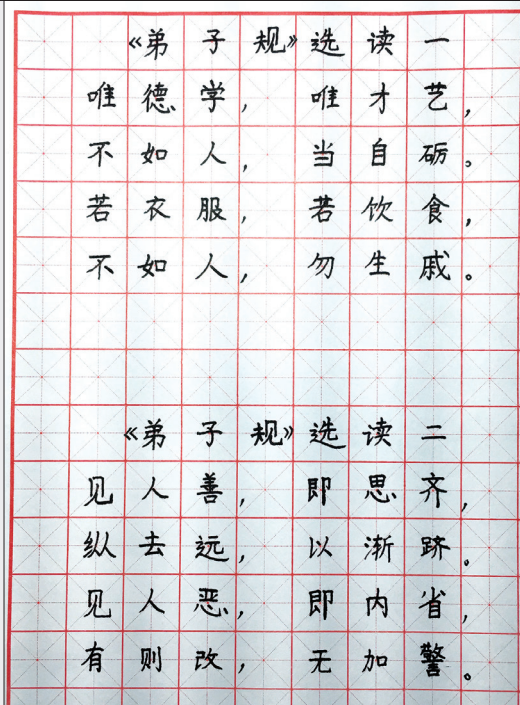 《弟子规》选读一
唯德学，唯才艺，
不如人，当自砺。
若衣服，若饮食，
不如人，勿生戚。
《弟子规》选读二
见人善，即思齐，
纵去远，以渐跻。
见人恶，即内省，
有则改，无加警。